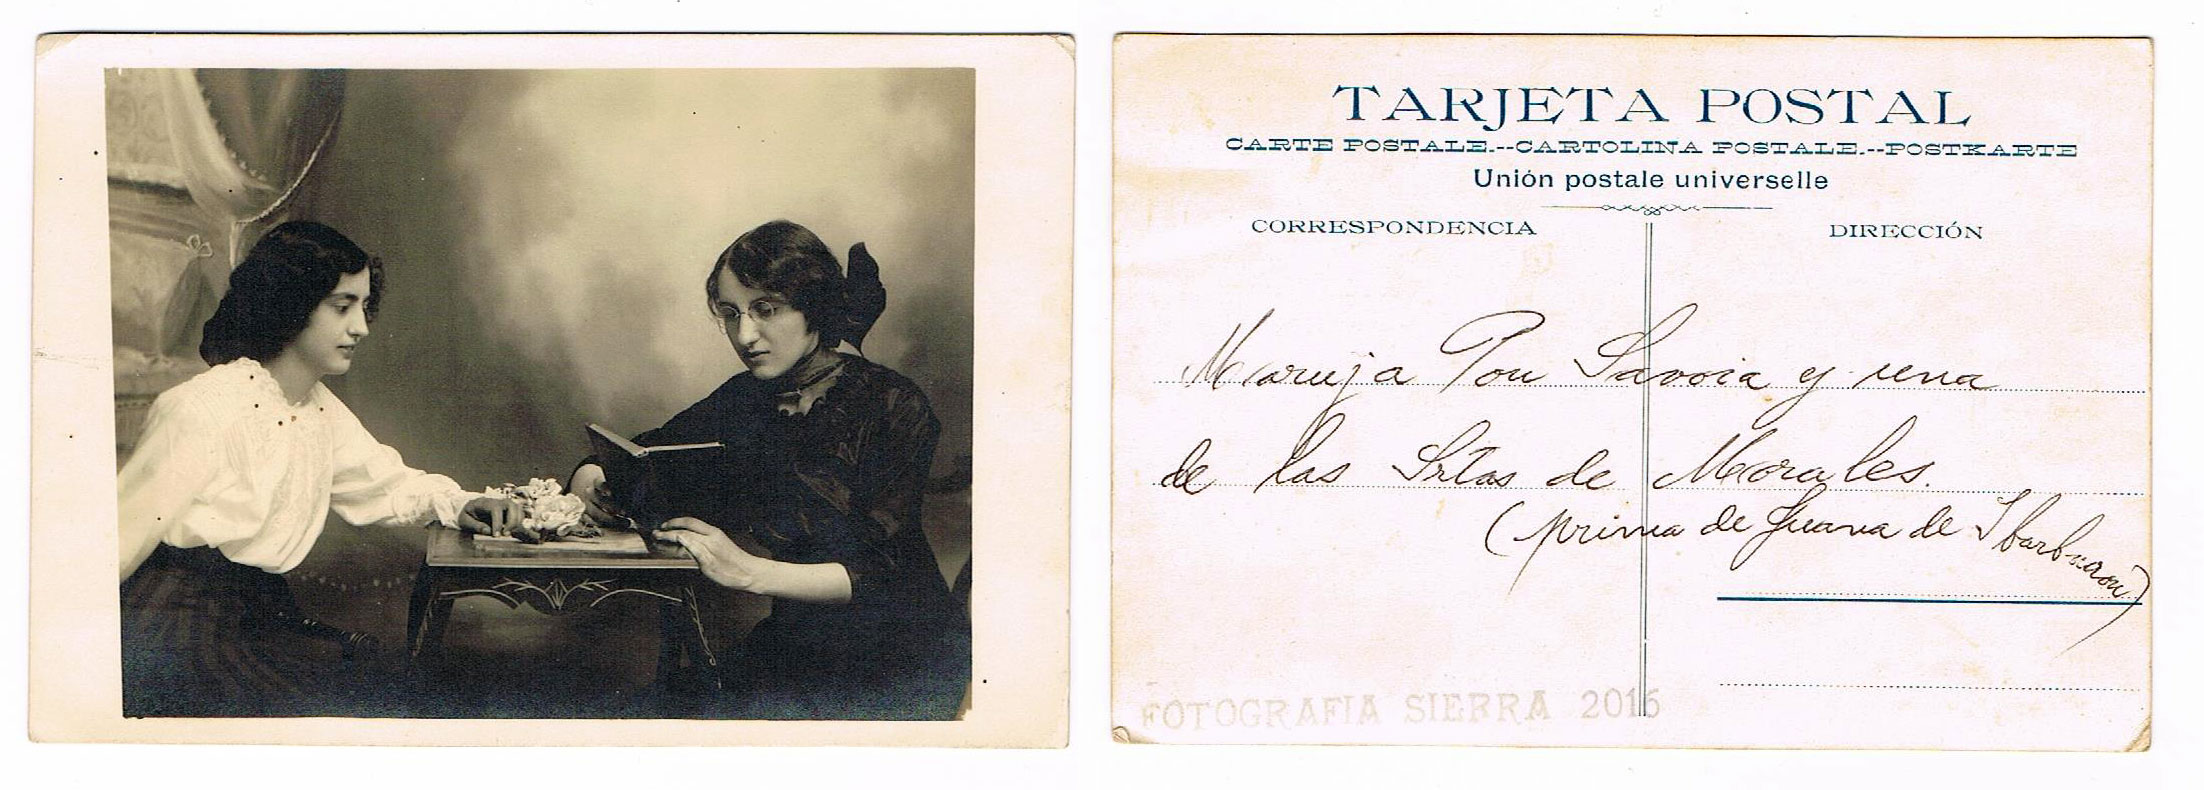 TARJETA POSTAL
CARTE POSTALE.--CARTOLINA POSTALE.--POSTKARTE
Unión postale universelle
CORRESPONDENCIA
DIRECCIÓN
Maruja Pou Savoia y una
de las Srtas de Morales.
(prima de Juana de Ibarbourou)
FOTOGRAFIA SIERRA 2016